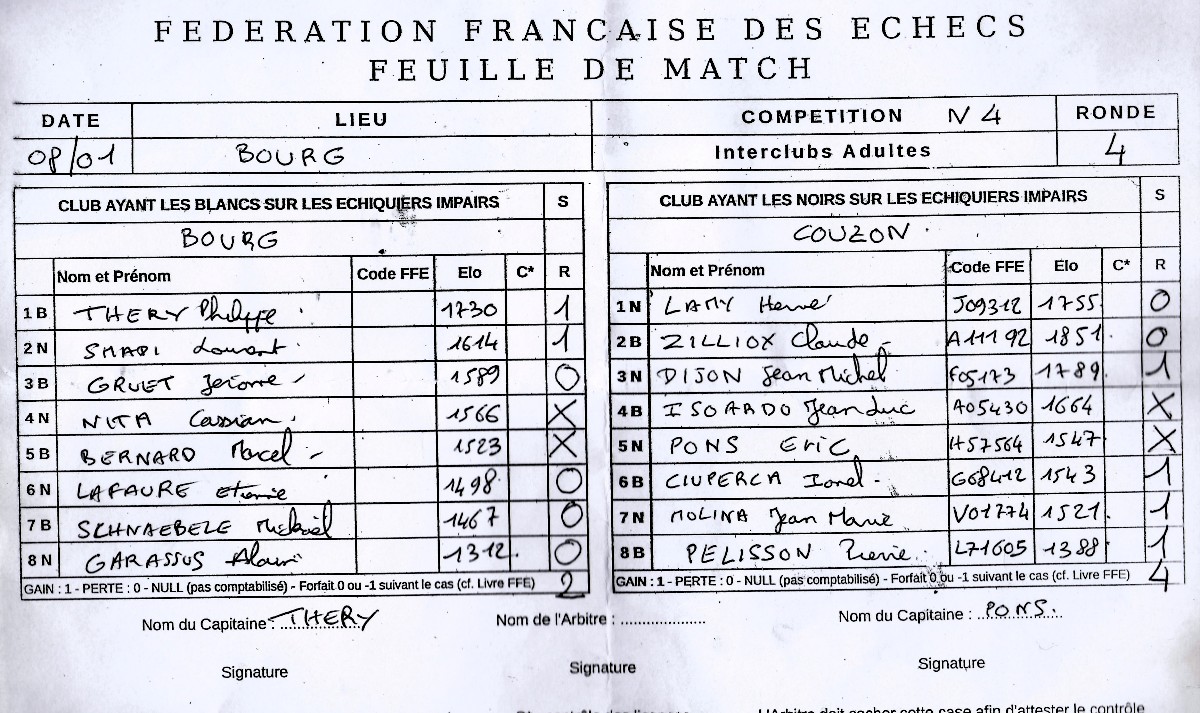 FEDERATION FRANCAISE DES ECHECS
FEUILLE DE MATCH
DATE LIEU COMPETITION N4 RONDE
08/01 BOURG Interclubs Adultes 4
CLUB AYANT LES BLANCS SUR LES ECHIQUIERS IMPAIRS S
BOURG
Nom et Prénom Code FFE Elo C* R
1 B THERY Philippe 1730 1
2 N 1614 1
3 B GRUET Jerome 1589 0
4 N NITA Cassian 1566 X
5 B BERNARD Marcel 1523 X
6 N LAFAURE Etienne 1498 0
7 B SCHNAEBELE Mickaël 1467 0
8 N GARASSUS Alain 1312 0
GAIN : 1 - PERTE : 0 - NULL (pas comptabilisé) - Forfait 0 ou -1 suivant le cas (cf. Livre FFE) 2
CLUB AYANT LES NOIRS SUR LES ECHIQUIERS IMPAIRS S
COUZON
Nom et Prénom Code FFE Elo C* R
1 N LAMY Herve J09312 1755 0
2 B ZILLIOX Claude A11192 1851 0
3 N DIJON Jean Michel F05173 1789 1
4 B ISOARDO Jean Luc A05430 1664 X
5 N PONS Eric H57564 1547 X
6 B CIUPERCA Ionel G68412 1543 1
7 N MOLINA Jean Marie V01774 1521 1
8 B PELISSON Pierre L71605 1388 1
GAIN : 1 - PERTE : 0 - NULL (pas comptabilisé) - Forfait 0 ou -1 suivant le cas (cf. Livre FFE) 4
Nom du Capitaine : THERY Nom de l'Arbitre : .................... Nom du Capitaine : PONS.
Signature Signature Signature
L'Arbitre doit cocher cette case afin d'attester le contrôle